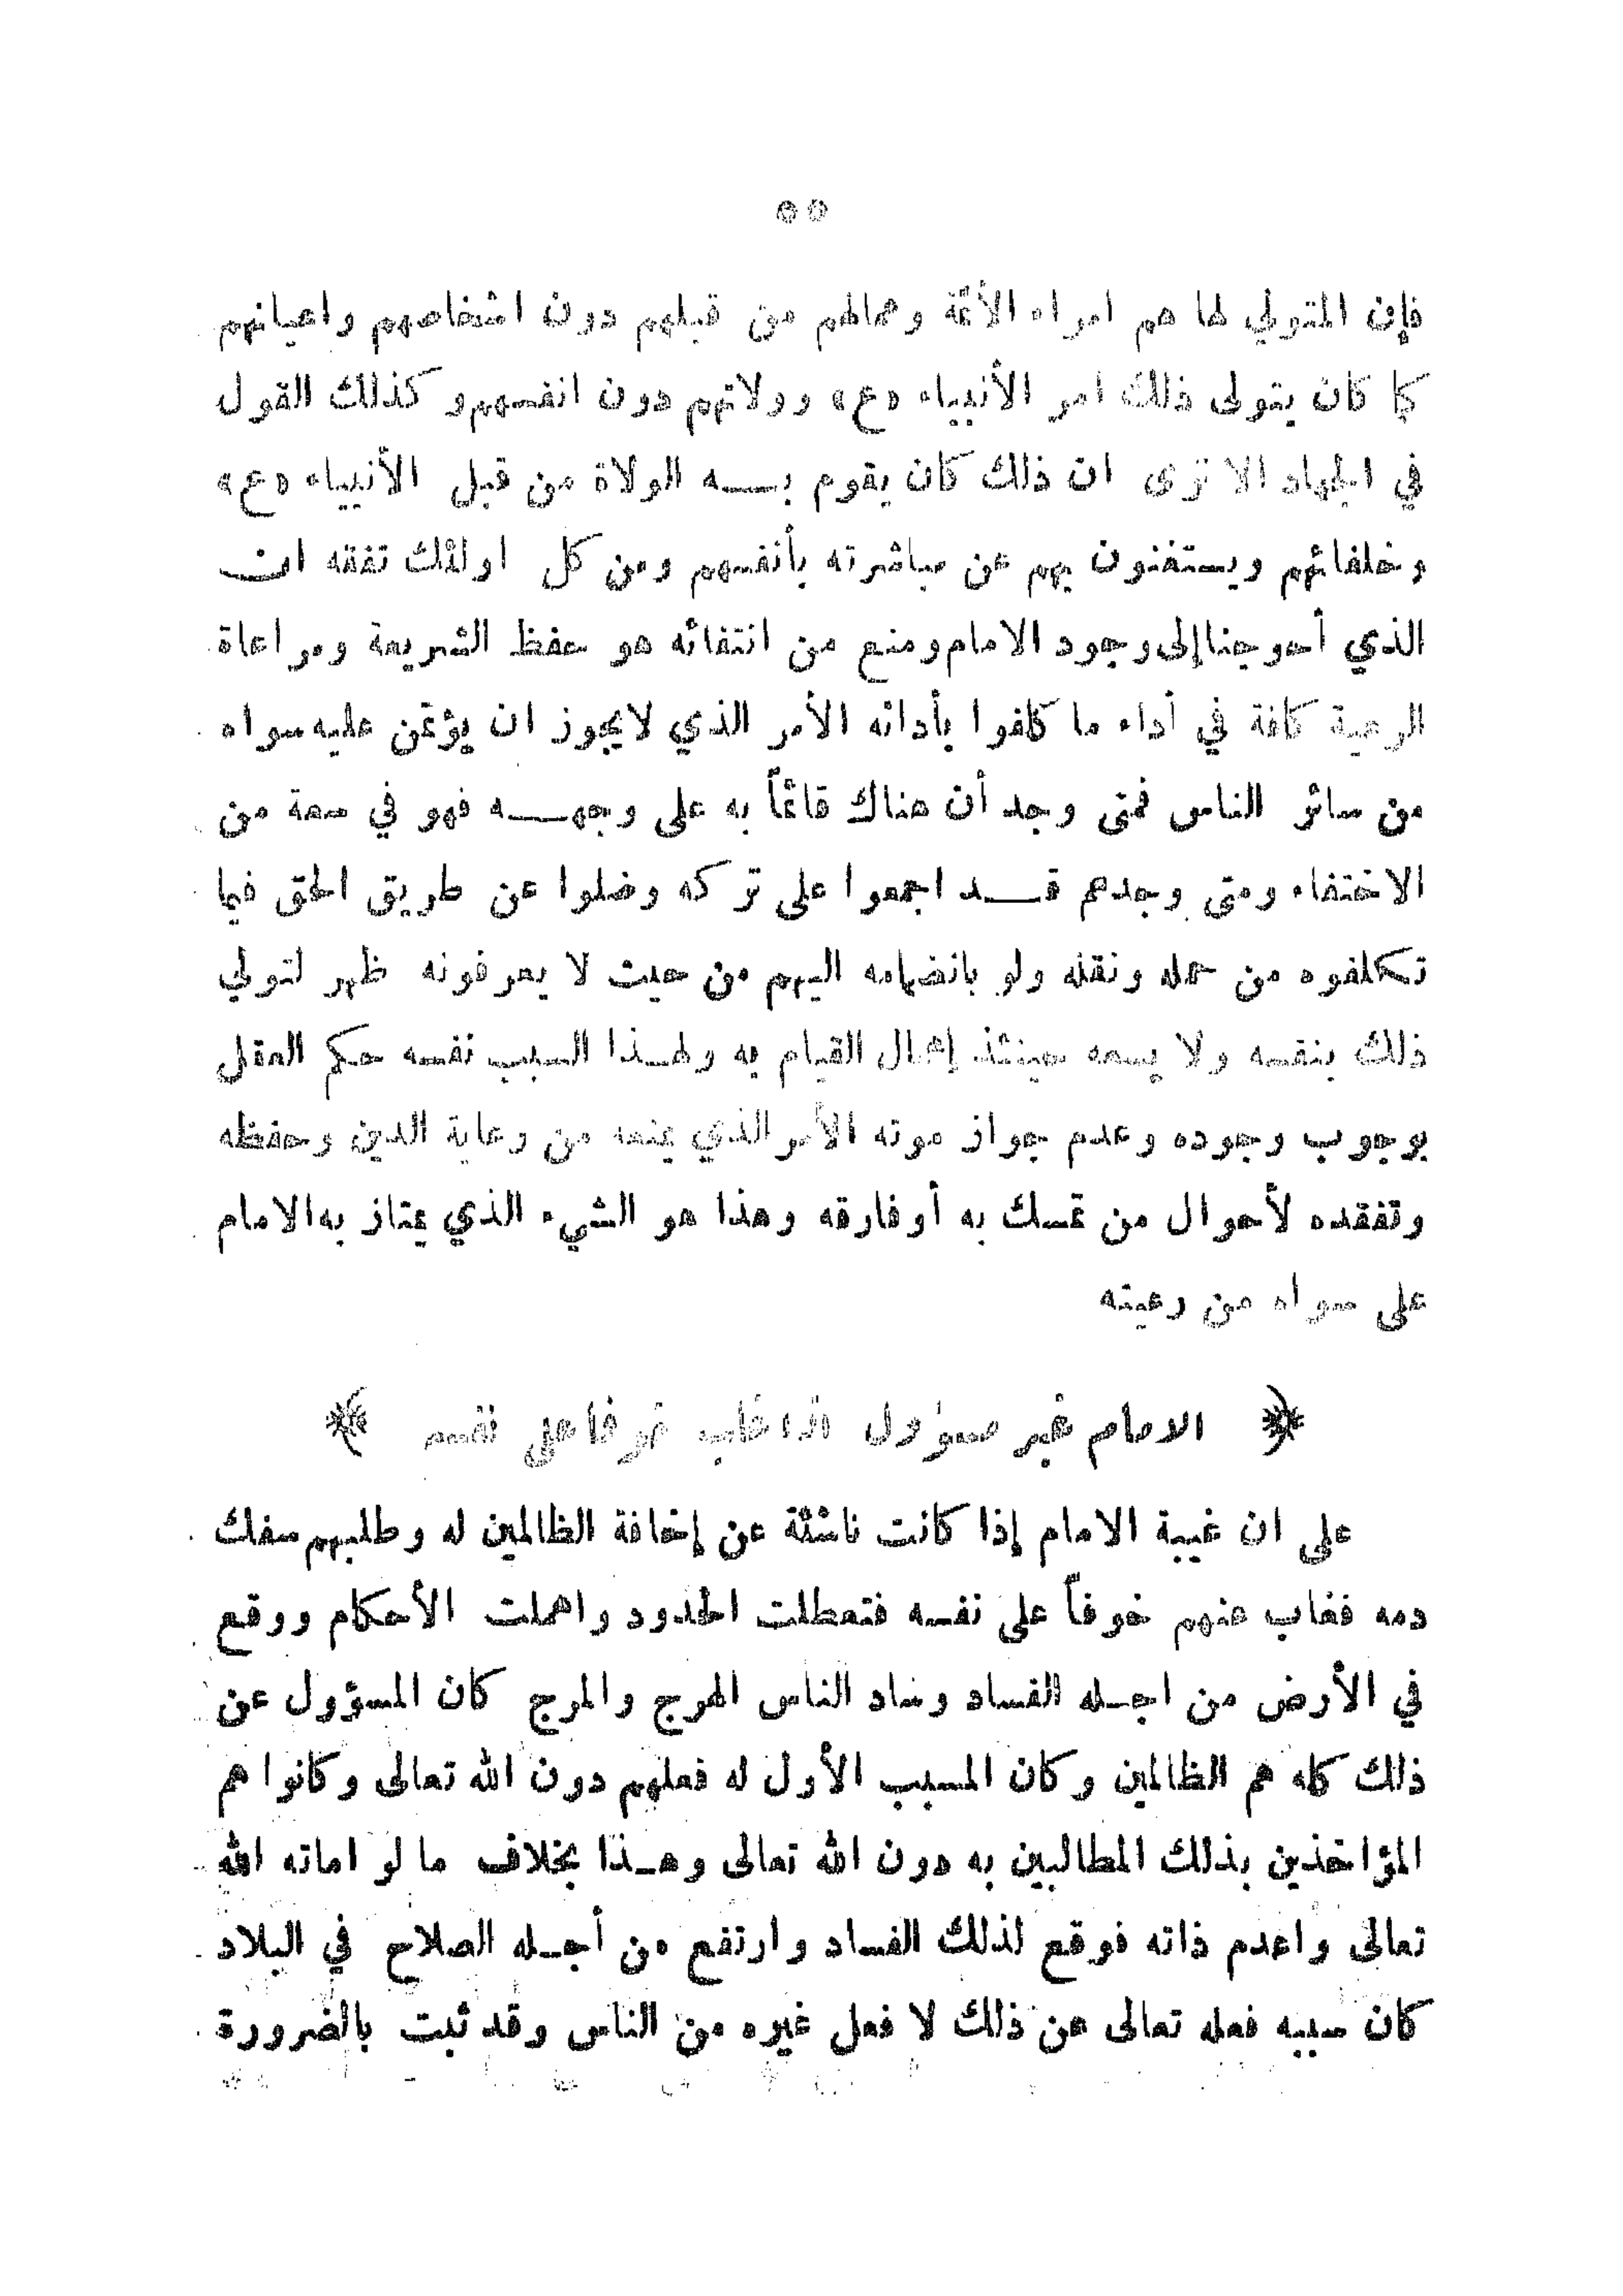 ٥٥
فإن المتولي لها هم امراء الأئمة وعمالهم من قبلهم دون اشخاصهم واعيانهم
كما كان يتولى ذلك امر الأنبياء «ع» وولاتهم دون انفسهم وكذلك القول
في الجهاد الا ترى ان ذلك كان يقوم بـــه الولاة من قبل الأنبياء «ع»
وخلفائهم ويستغنون بهم عن مباشرته بأنفسهم ومن كل اولئك تفقه ان
الذي أحوجنا إلى وجود الامام ومنع من انتفائه هو حفظ الشريعة ومراعاة
الرعية كافة في أداء ما كلفوا بأدائه الأمر الذي لا يجوز ان يؤتمن عليه سواه
من سائر الناس فمتى وجد أن هناك قائماً به على وجهـــه فهو في سعة من
الاختفاء ومتى وجدهم قـــد اجمعوا على تركه وضلوا عن طريق الحق فيما
تكلفوه من حمله ونقله ولو بانضمامه اليهم من حيث لا يعرفونه ظهر لتولي
ذلك بنفسه ولا يسعه حينئذ إهمال القيام به ولهـذا السبب نفسه حكم العقل
بوجوب وجوده وعدم جواز موته الأمر الذي يمنعه من رعاية الدين وحفظه
وتفقده لأحوال من تمسك به أو فارقه وهذا هو الشيء الذي يمتاز به الامام
على سواه من رعيته
الامام غير مسؤول اذا غاب خوفا على نفسه
على ان غيبة الامام إذا كانت ناشئة عن إخافة الظالمين له وطلبهم سفك
دمه فغاب عنهم خوفاً على نفسه فتعطلت الحدود واهملت الأحكام ووقع
في الأرض من اجـله الفساد وساد الناس الهرج والمرج كان المسؤول عن
ذلك كله هم الظالمين وكان المسبب الأول له فعلهم دون الله تعالى وكانوا هم
المؤاخذين بذلك المطالبين به دون الله تعالى وهـذا بخلاف ما لو اماته الله
تعالى واعدم ذاته فوقع لذلك الفساد وارتفع من أجـله الصلاح في البلاد
كان سببه فعله تعالى عن ذلك لا فعل غيره من الناس وقد ثبت بالضرورة